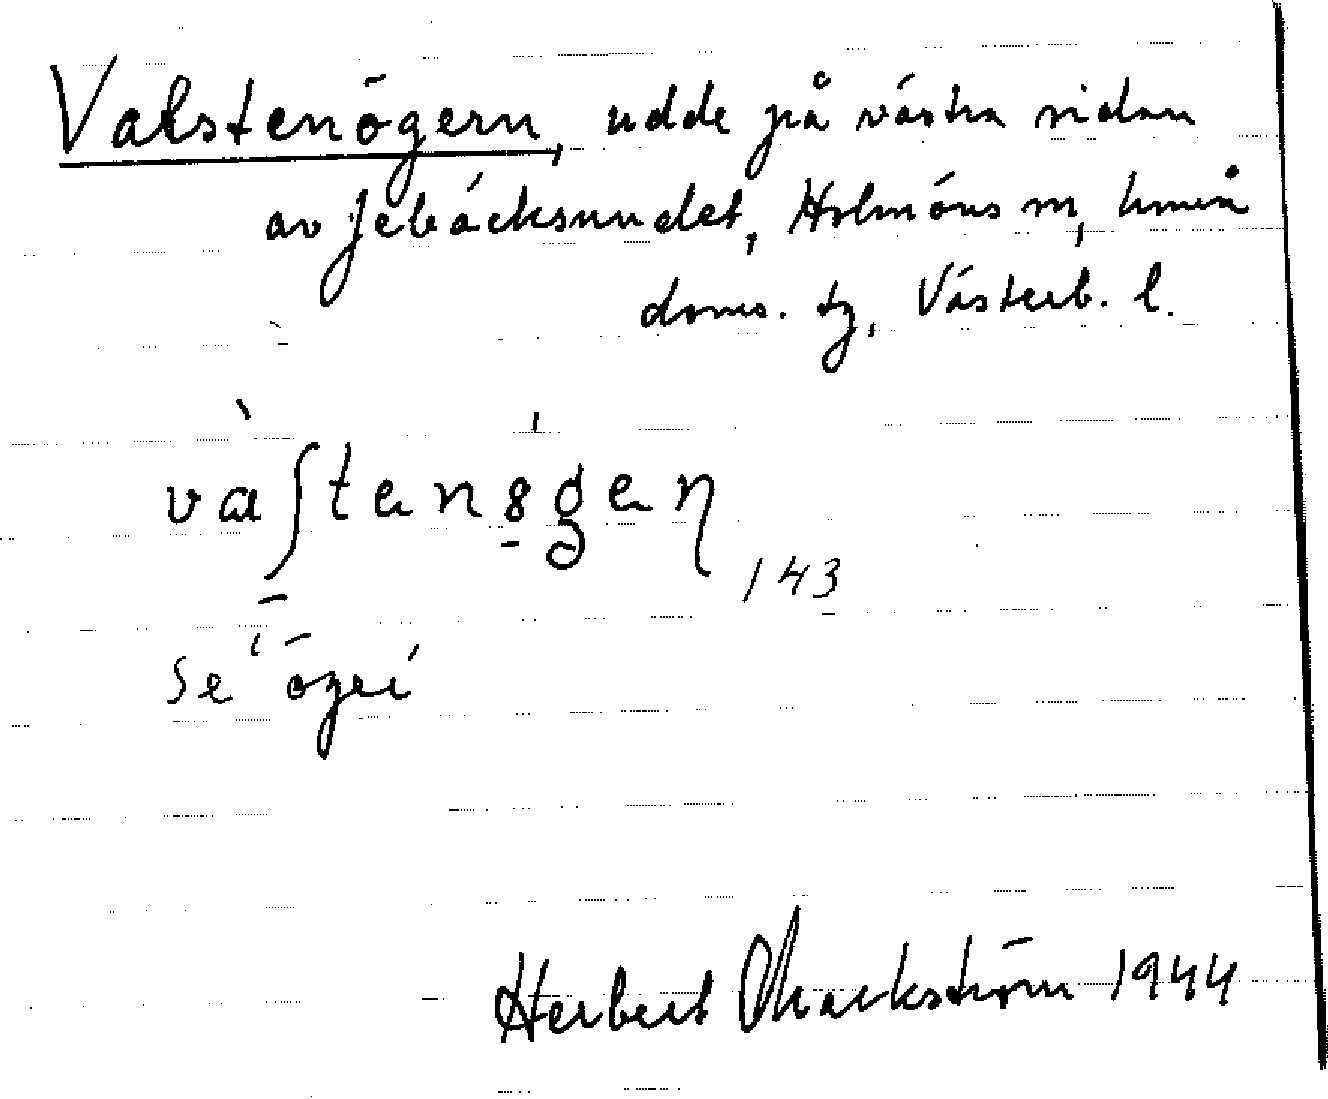 Valstenögern, udde på västra sidan
av Jebäcksundet, Holmöns sn, Umeå
doms. tg, Västerb. l.
vɑʃtenøgeɳ 143
Se ögei
Herbert Markström 1944